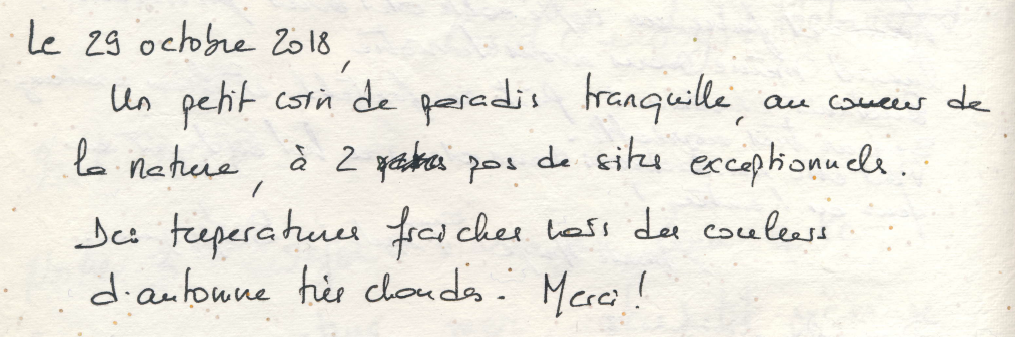 Le 29 octobre 2018,
Un petit coin de paradis tranquille, au coeur de
la nature, à 2 pas de sites exceptionnels.
Des temperatures fraiches mais des couleurs
d'automne très chaudes. Merci !